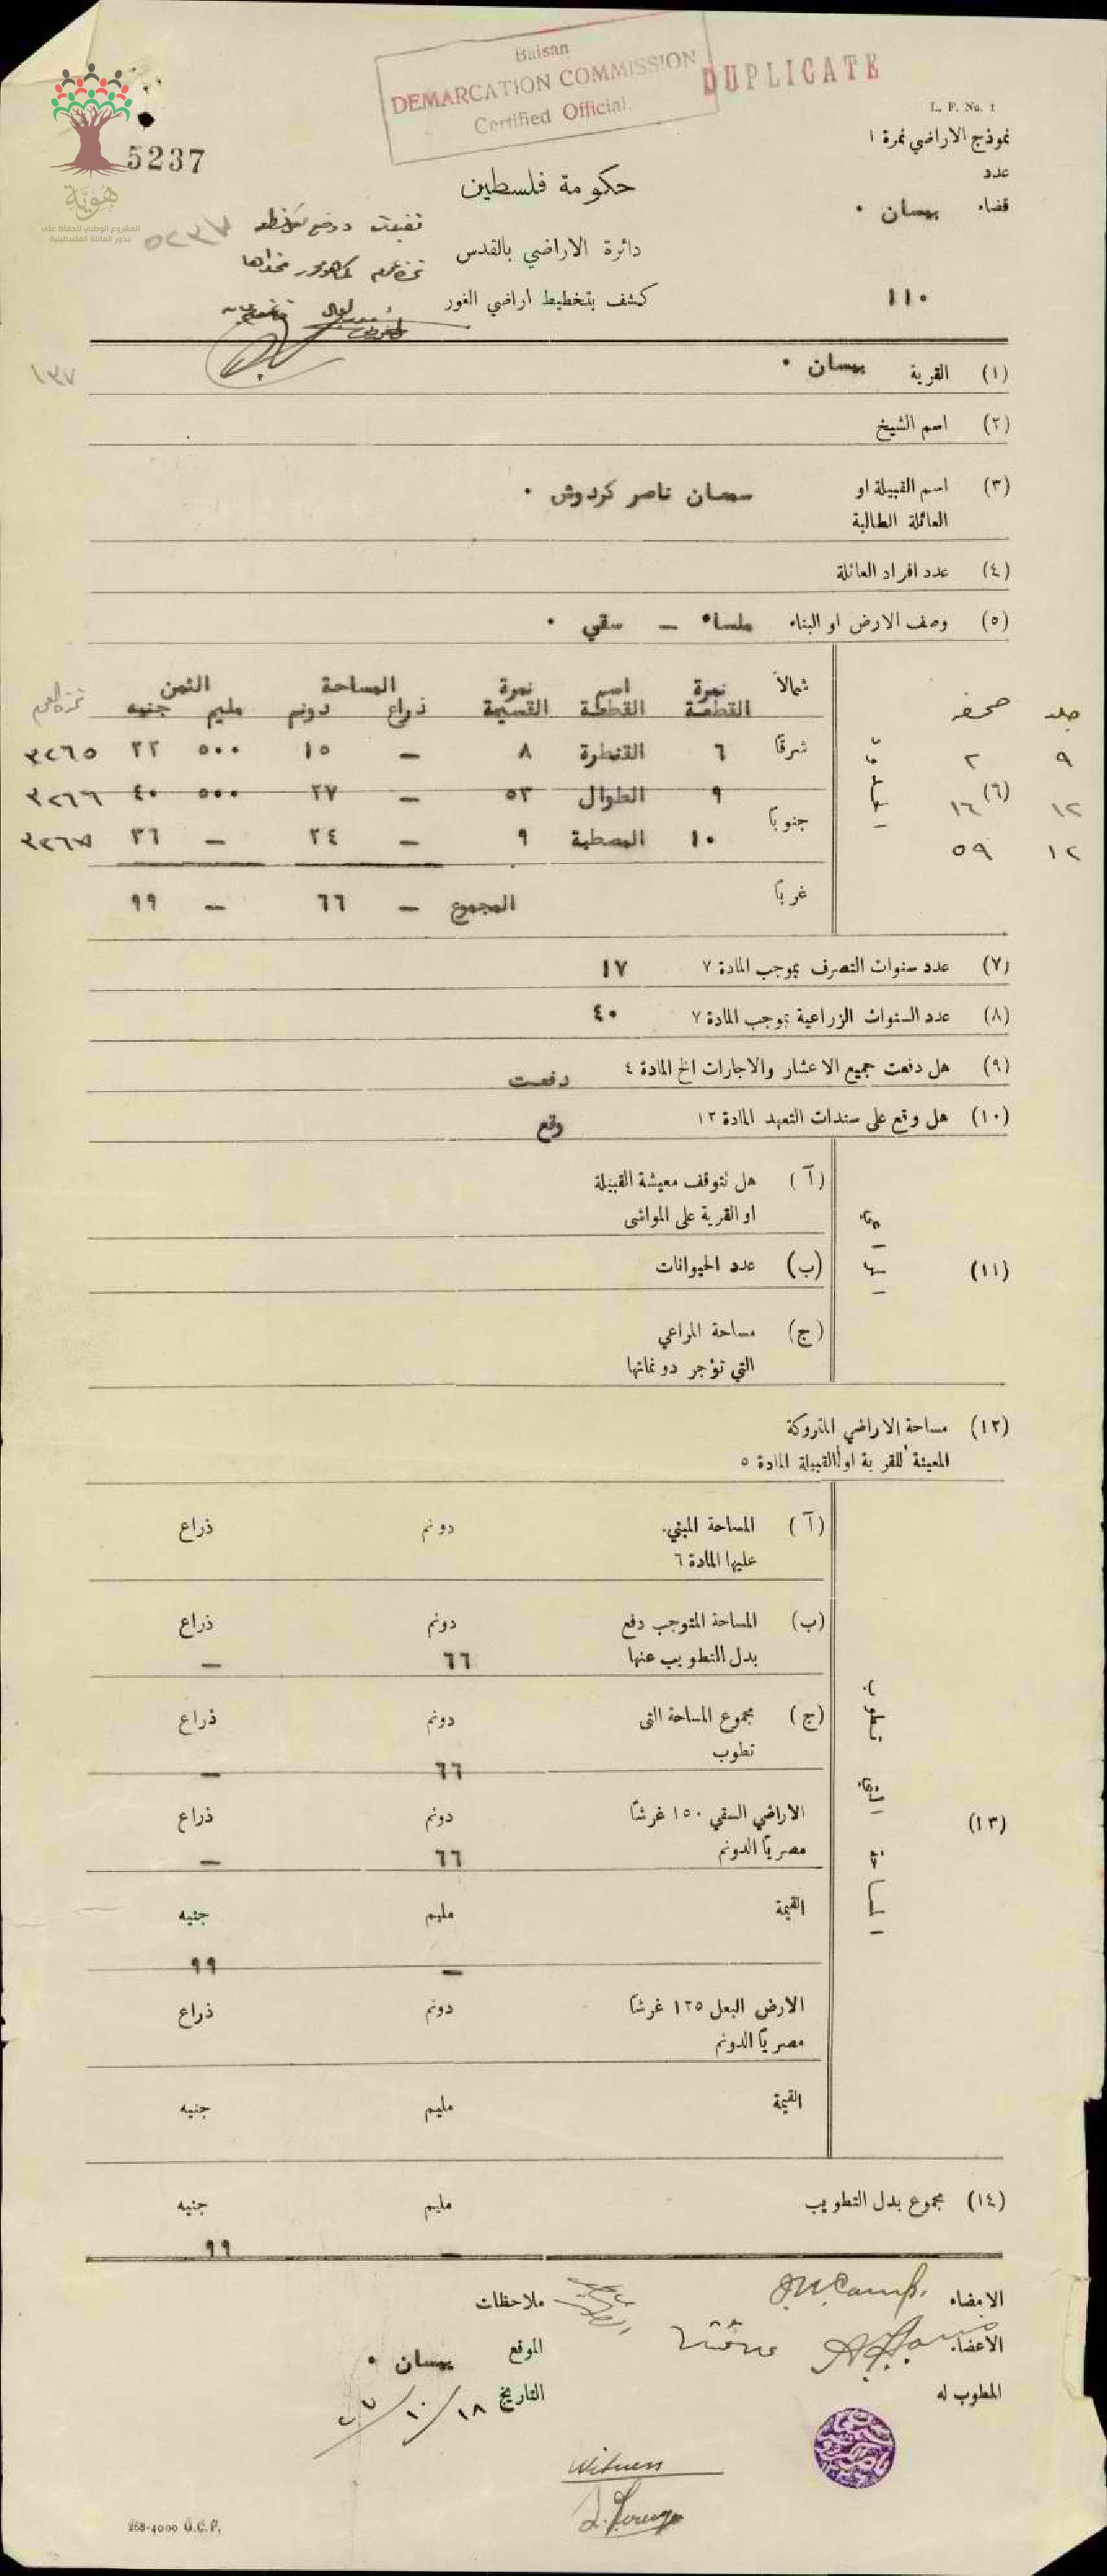 Baisan
DEMARCATION COMMISSION
Certified Official.
DUPLICATE
L. F. No. 1
نموذج الاراضي نمرة ١
عدد
قضاء بيسان •
١١٠
5237
هُوِيَّة
المشروع الوطني للحفاظ على
جذور العائلة الفلسطينية
٥٢٣٧
حكومة فلسطين
دائرة الاراضي بالقدس
كشف بتخطيط اراضي الغور
١٣٧
(١) القرية بيسان •
(٢) اسم الشيخ
(٣) اسم القبيلة او سمعان ناصر كردوش •
العائلة الطالبة
(٤) عدد افراد العائلة
(٥) وصف الارض او البناء ملساء — سقي •
جلد صحيفه شمالاً نمرة القطعة اسم القطعة نمرة القسيمة المساحة الثمن
ذراع دونم مليم جنيه
٩ ٢ شرقاً ٦ القنطرة ٨ — ١٥ ٥٠٠ ٢٢ ٣٢٦٥
١٢ ١٦ (٦) ٩ الطوال ٥٣ — ٢٧ ٥٠٠ ٤٠ ٣٢٦٦
جنوباً
١٢ ٥٩ ١٠ المصطبة ٩ — ٢٤ — ٣٦ ٣٢٦٧
غرباً المجموع — ٦٦ — ٩٩
(٧) عدد سنوات التصرف بموجب المادة ٧ ١٧
(٨) عدد السنوات الزراعية بموجب المادة ٧ ٤٠
(٩) هل دفعت جميع الاعشار والاجارات الخ المادة ٤ دفعت
(١٠) هل وقع على سندات التعهد المادة ١٣ وقع
(آ) هل تتوقف معيشة القبيلة
او القرية على المواشي
(١١) (ب) عدد الحيوانات
(ج) مساحة المراعي
التي تؤجر دونماتها
(١٢) مساحة الاراضي المتروكة
المعينة للقرية او القبيلة المادة ٥
(آ) المساحة المبني دونم ذراع
عليها المادة ٦
(ب) المساحة المتوجب دفع دونم ذراع
بدل التطويب عنها ٦٦ —
(ج) مجموع المساحة التى دونم ذراع
تطوب ٦٦ —
(١٣) الاراضي السقي ١٥٠ غرشاً دونم ذراع
مصرياً الدونم ٦٦ —
القيمة مليم جنيه
— ٩٩
الارض البعل ١٢٥ غرشاً دونم ذراع
مصرياً الدونم
القيمة مليم جنيه
(١٤) مجموع بدل التطويب مليم جنيه
— ٩٩
الامضاء
الاعضاء
المطوب له
ملاحظات
الموقع بيسان •
التاريخ ١٨/١٠/٢٧
Witness
268-4000 G.C.P.